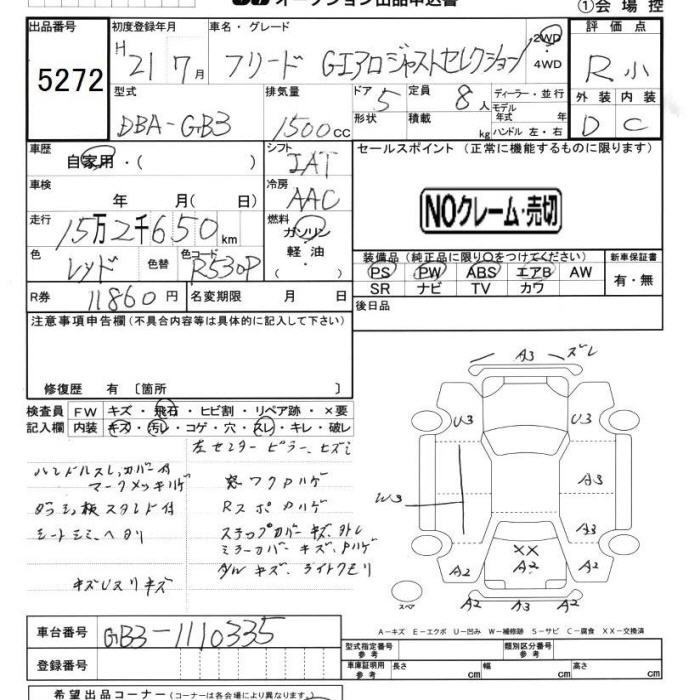 オークション出品申込書
①会場控
出品番号 初度登録年月 車名・グレード 2WD 評価点
5272 H 21 7月 フリード Gエアロジャストセレクション 4WD R小
型式 排気量 ドア 5 定員 8人 ディーラー・並行 外装 内装
DBA-GB3 1500cc 形状 積載 kg モデル年式 年 D C
ハンドル 左・右
車歴 自家用・( ) シフト IAT セールスポイント (正常に機能するものに限ります)
車検 年 月( 日) 冷房 AAC
NOクレーム・売切
走行 15万2千650km 燃料 ガソリン
色 レッド 色替 色コード R530P 軽油・
装備品 (純正品に限り○をつけてください) 新車保証書
PS PW ABS エアB AW 有・無
SR ナビ TV カワ
R券 11860円 名変期限 月 日 後日品
注意事項申告欄(不具合内容等は具体的に記入して下さい)
修復歴 有 〔箇所 〕
検査員 FW キズ・飛石・ヒビ割・リペア跡・×要
記入欄 内装 キズ・汚レ・コゲ・穴・スレ・キレ・破レ
左センターピラー、ヒズミ
ハンドルスレ、カバー付
マークメッキハゲ
窓ワクハゲ
ダッシュ板スタンド付
Rスポハゲ
シートシミ、ヘタリ
ステップカバーキズ、外レ
ミラーカバーキズ、ハゲ
キズUスリキズ
ライトクモリ
A3 ズレ
U3 U3
A3
W3
A3
XX
A2 A2 A2
A2 A3 A2
スペア
A-キズ E-エクボ U-凹み W-補修跡 S-サビ C-腐食 XX-交換済
車台番号 GB3-1110335
型式指定番号 参考 類別区分番号 参考
登録番号
車庫証明用 参考 長さ cm 幅 cm 高さ cm
希望出品コーナー (コーナーは各会場により異なります。